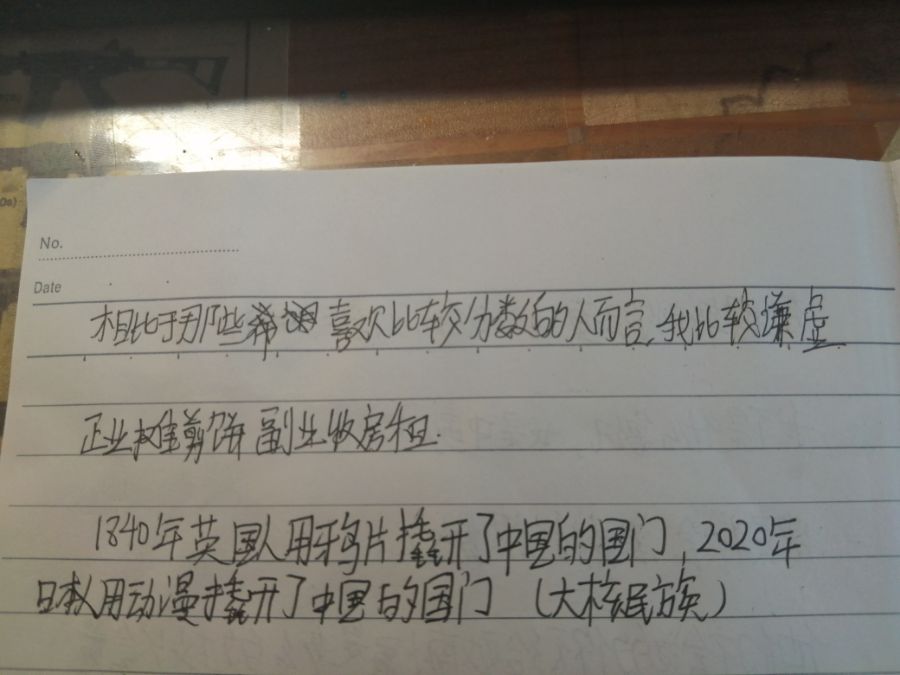 No.
Date
相比于那些喜欢比较分数的人而言,我比较谦虚
正业摊剪饼 副业收房租.
1840年英国人用鸦片撬开了中国的国门,2020年
日本人用动漫撬开了中国的国门 (大核民族)